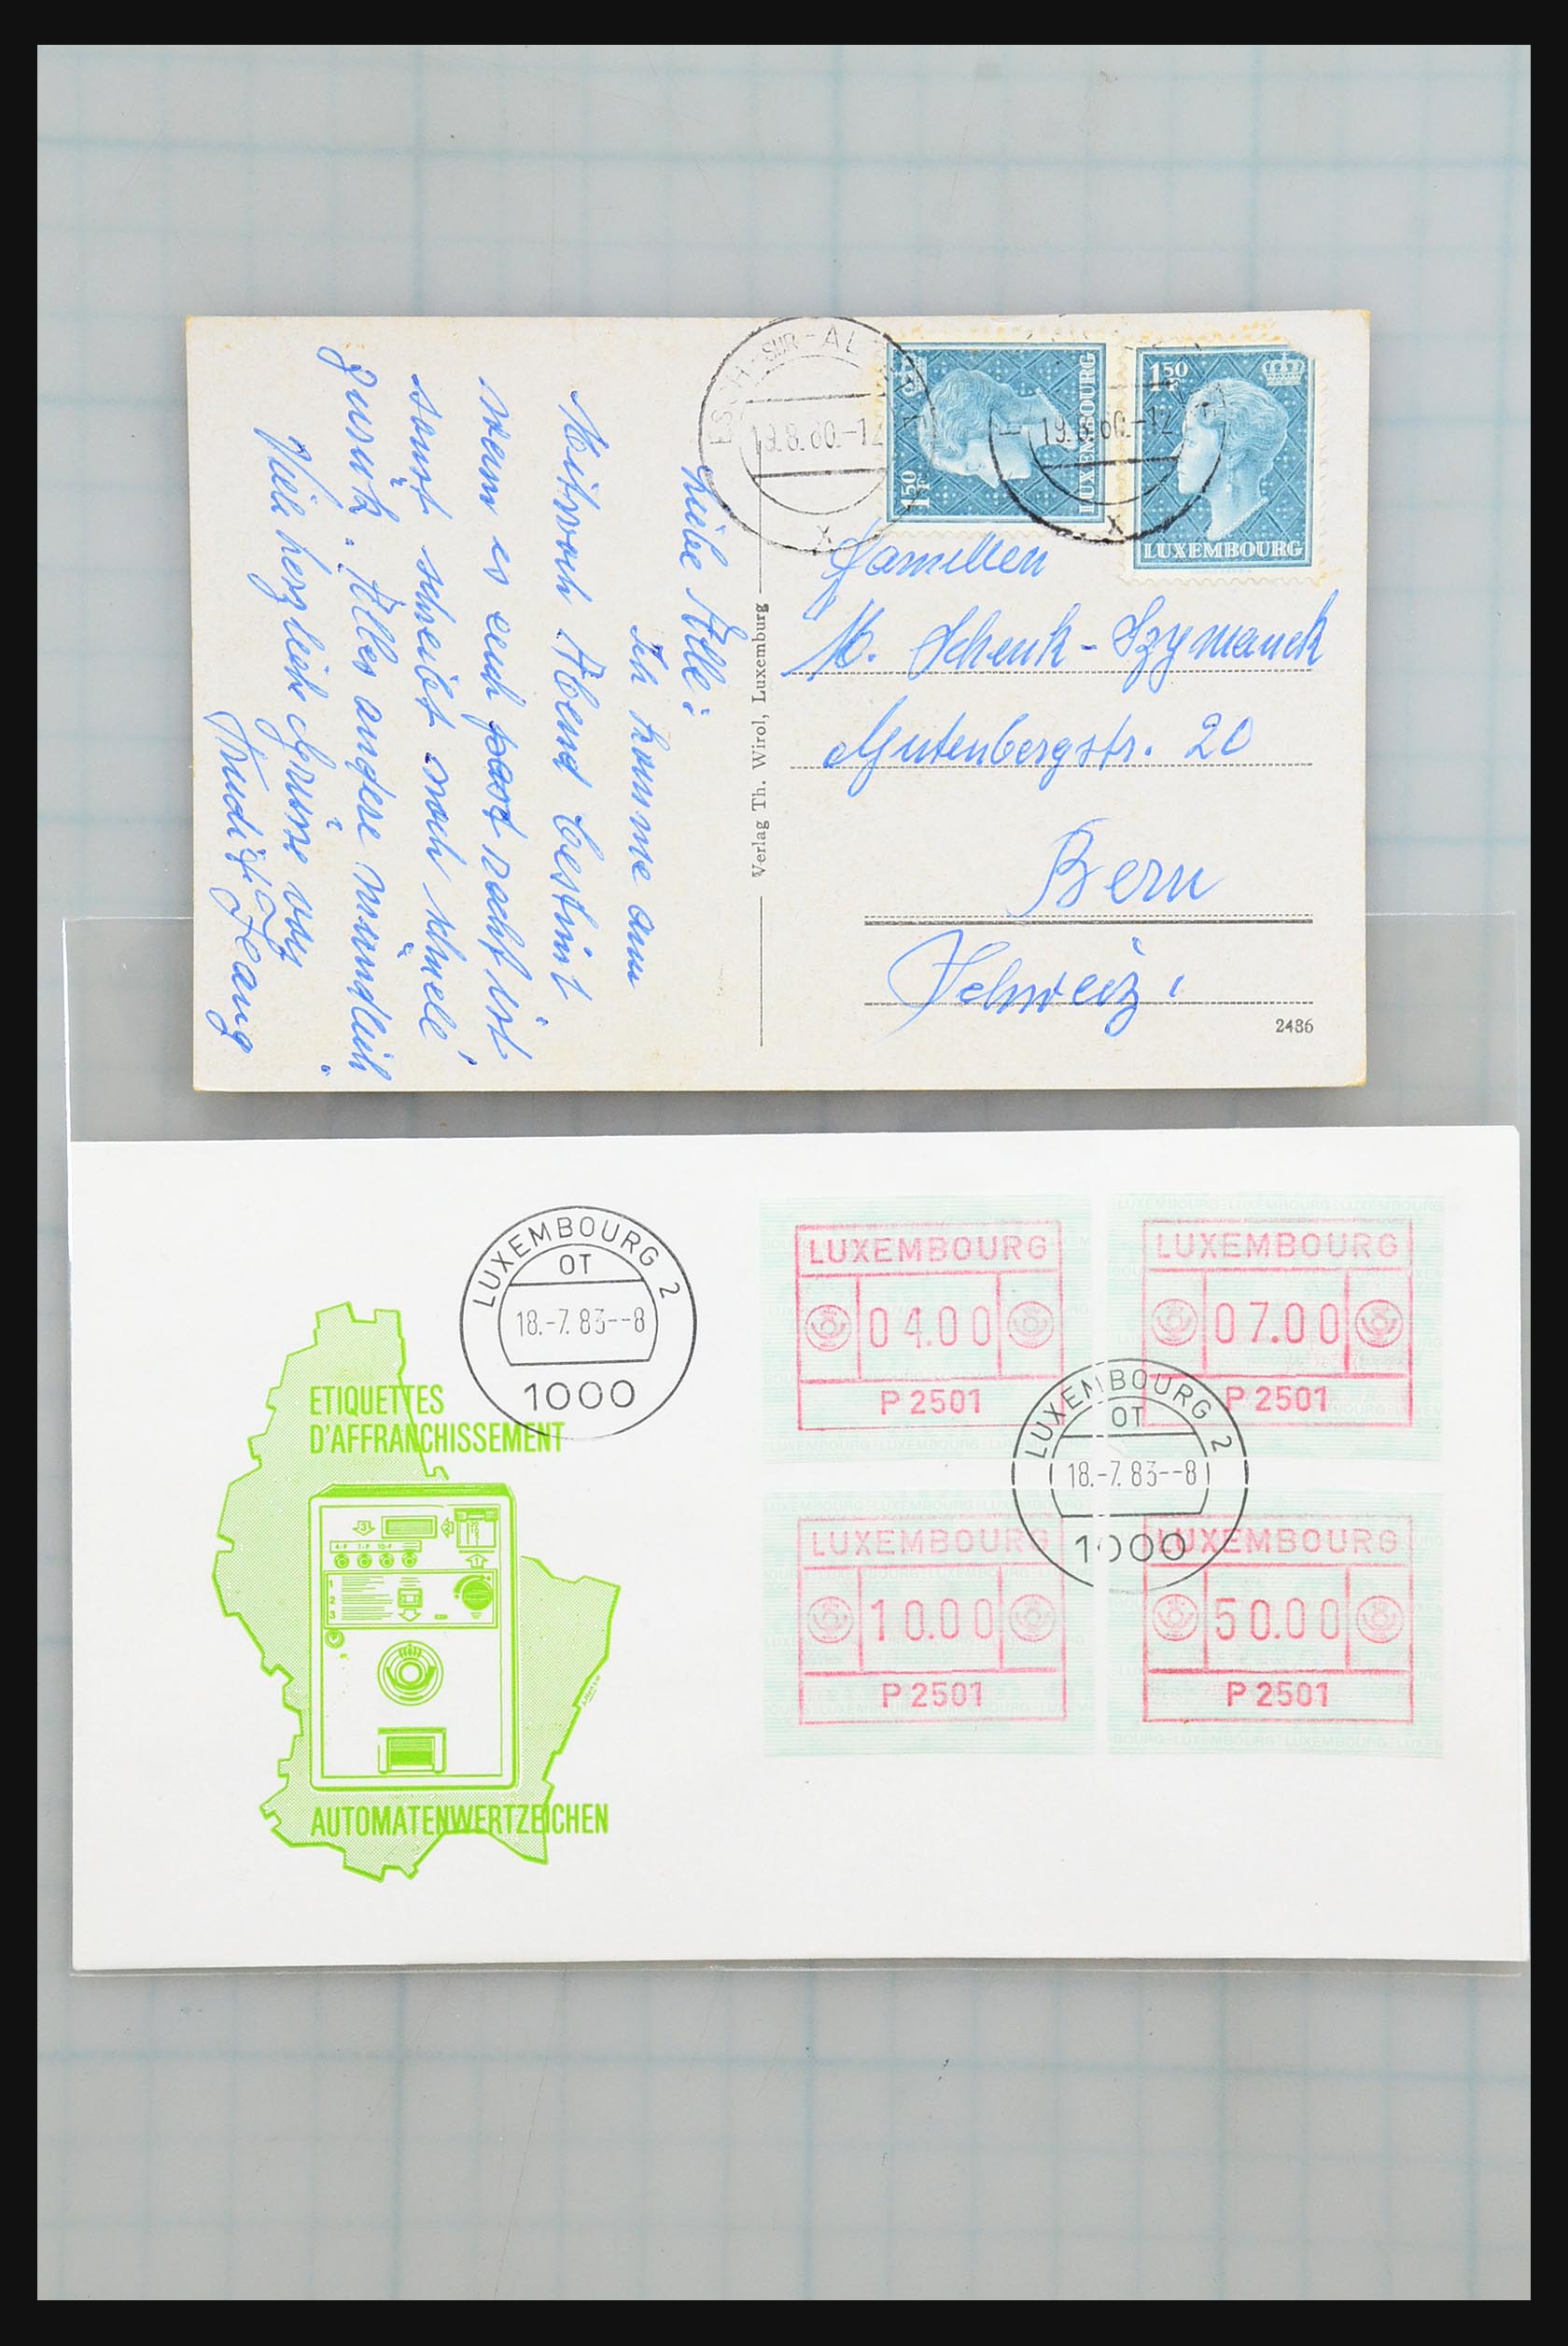 ESCH-SUR-AL
19.8.60.-12
X
1F50
LUXEMBOURG
19.8.60.-12
X
1F50
LUXEMBOURG
Familien
M. Schenk-Szymanek
Gutenbergstr. 20
Bern
Schweiz
2486
Verlag Th. Wirol, Luxemburg
Liebe Alle!
Ich komme am
Mitwoch Abend bestimt
wenn es euch passt recht ist
sonst schreibt noch schnell
zurük. Alles andere mündlich
Viele herzliche Grüsse von
Trudi
LUXEMBOURG 2
OT
18.-7.83--8
1000
ETIQUETTES
D'AFFRANCHISSEMENT
4-F 7-F 10-F
1
2
3
AUTOMATENWERTZEICHEN
LUXEMBOURG
04.00
P 2501
LUXEMBOURG
07.00
P 2501
LUXEMBOURG 2
OT
18.-7.83--8
1000
LUXEMBOURG
10.00
P 2501
LUXEMBOURG
50.00
P 2501